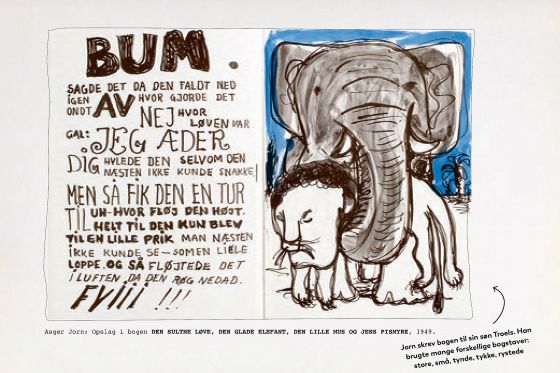 BUM.
SAGDE DET DA DEN FALDT NED
IGEN AV HVOR GJORDE DET
ONDT NEJ HVOR
LØVEN VAR
GAL: JEG ÆDER
DIG HYLEDE DEN SELVOM DEN
NÆSTEN IKKE KUNDE SNAKKE!
MEN SÅ FIK DEN EN TUR
TIL UH-HVOR FLØJ DEN HØJT.
HELT TIL DEN KUN BLEV
TIL EN LILLE PRIK MAN NÆSTEN
IKKE KUNDE SE-SOM EN LILLE
LOPPE. OG SÅ FLØJTEDE DET
I LUFTEN DA DEN RØG NEDAD.
FYIII !!!
Asger Jorn: Opslag i bogen DEN SULTNE LØVE, DEN GLADE ELEFANT, DEN LILLE MUS OG JENS PISMYRE, 1949.
Jorn skrev bogen til sin søn Troels. Han
brugte mange forskellige bogstaver:
store, små, tynde, tykke, rystede